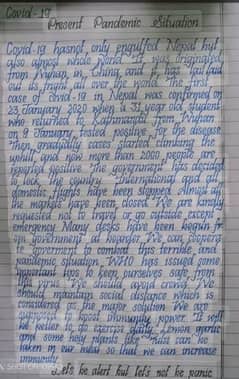 Covid-19
Present Pandemic Situation
Covid-19 hasnot only engulfed Nepal but
also almost whole world. It was originated
from Wuhan, in China, and it has laid
out its fright all over the world. The first
case of covid-19 in Nepal was confirmed on
23 January 2020 when a 31 year old student
who returned to Kathmandu from Wuhan
on 9 January tested positive for the disease.
Then gradually cases started climbing the
uphill, and now more than 2000 people are
reported positive. The government has decided
to lock the country. International and all
domestic flights have been stopped. Almost all
the markets have been closed. We are kindly
requested not to travel or go outside except
emergency. Many desks have been begun from
government at hospital. We can cooperate
government to combat this terrible and
pandemic situation. WHO has issued some
important tips to keep ourselves safe from
this virus. We should avoid crowd. We
should maintain social distance which is
considered as the major solution. We are
supposed to boost immunity power. It will
be better to do exercise daily. Lemon, garlic
and some holy plants like can be
taken in our meal so that we can increase
immunity.
Let's be alert but let's not be panic
SHOT ON